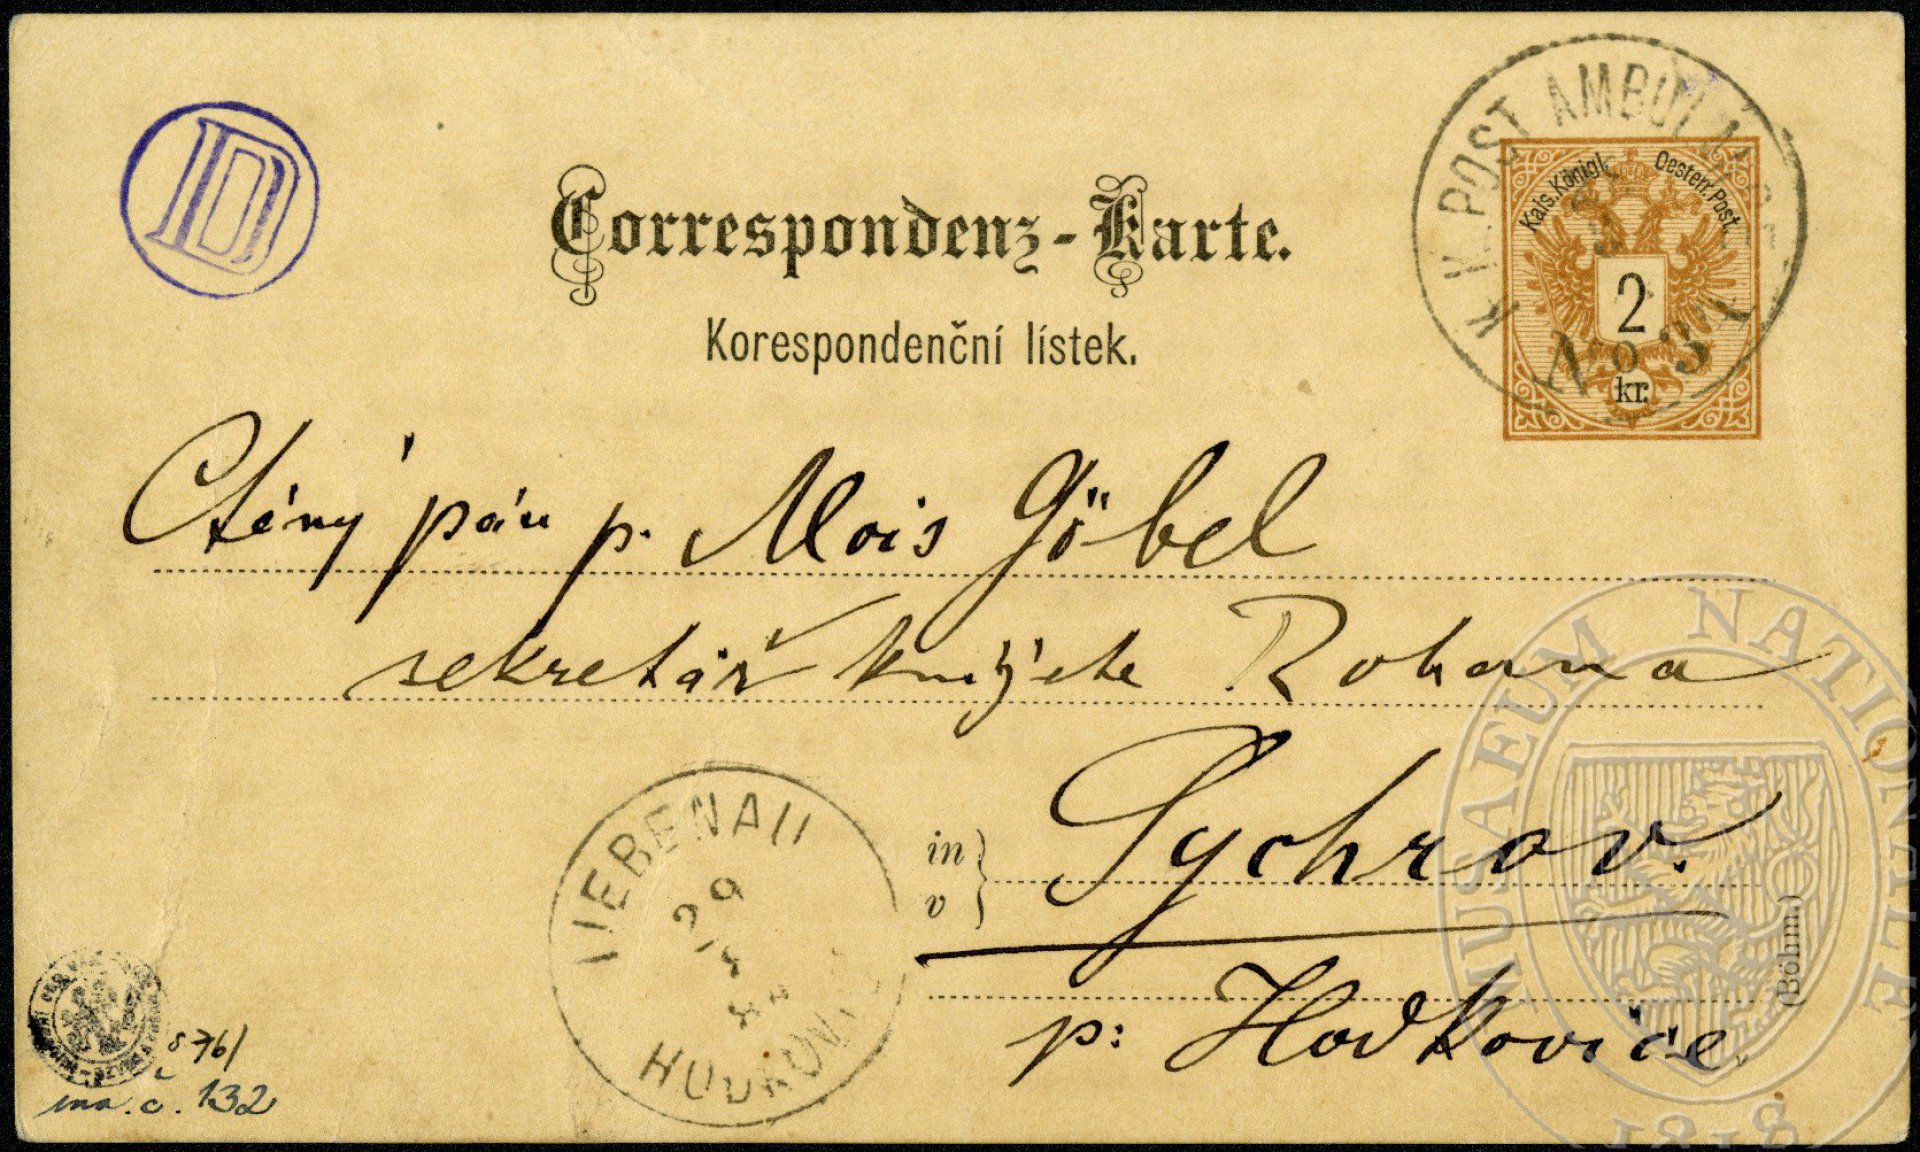 D
K. K. POST AMBULANCE
No 3
Kais. Königl. Oesterr. Post.
2
kr.
Correspondenz-Karte.
Korespondenční lístek.
Ctěný pán p. Alois Göbel
sekretář knížete Rohana
in
v
Sychrov.
p: Hodkovice
(Böhm.)
LIEBENAU
HODKOV
MUSAEUM NATIONALE
1818
876/
inv. č. 132